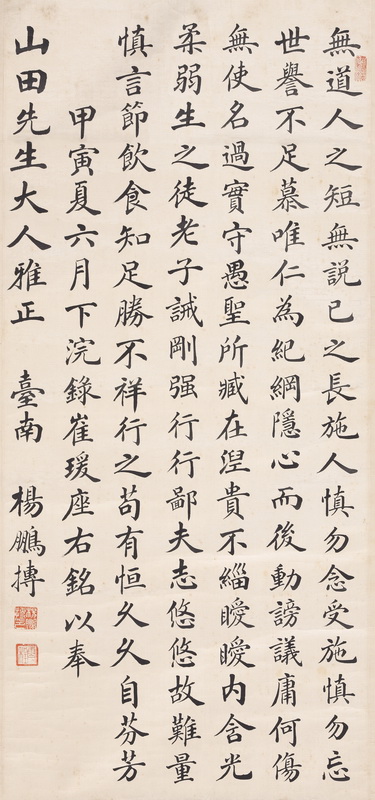 無道人之短無説己之長施人慎勿念受施慎勿忘
世譽不足慕唯仁為紀綱隱心而後動謗議庸何傷
無使名過實守愚聖所臧在涅貴不緇曖曖內含光
柔弱生之徒老子誡剛强行行鄙夫志悠悠故難量
慎言節飲食知足勝不祥行之苟有恒久久自芬芳
甲寅夏六月下浣錄崔瑗座右銘以奉
山田先生大人雅正 臺南 楊鵬摶